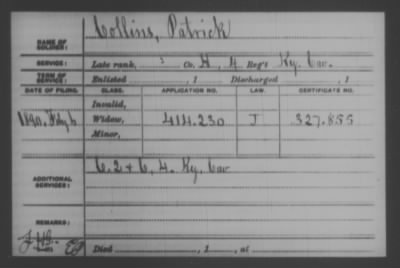 NAME OF SOLDIER: Collins, Patrick
SERVICE: Late rank, Co. H, 4 Reg't Ky. Cav.
TERM OF SERVICE: Enlisted , 1 Discharged , 1
DATE OF FILING. CLASS. APPLICATION NO. LAW. CERTIFICATE NO.
Invalid,
1890. July 6 Widow, 414.230 J 327.855
Minor,
ADDITIONAL SERVICES: C. 2 & C, 4. Ky. Cav
REMARKS:
Died , 1 , at